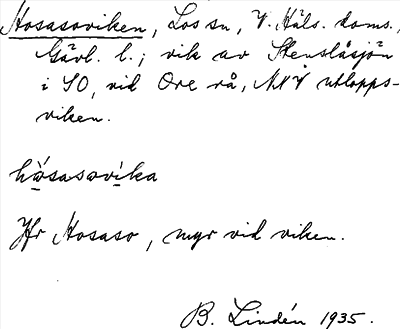 Hosasoviken, Los sn, V. Häls. doms.,
Gävl. l.; vik av Stenslåsjön
i SO, vid Ore rå, NNV utlopps-
viken.
hòsasovi̱ka
Jfr Hosaso, myr vid viken.
B. Lindén 1935.